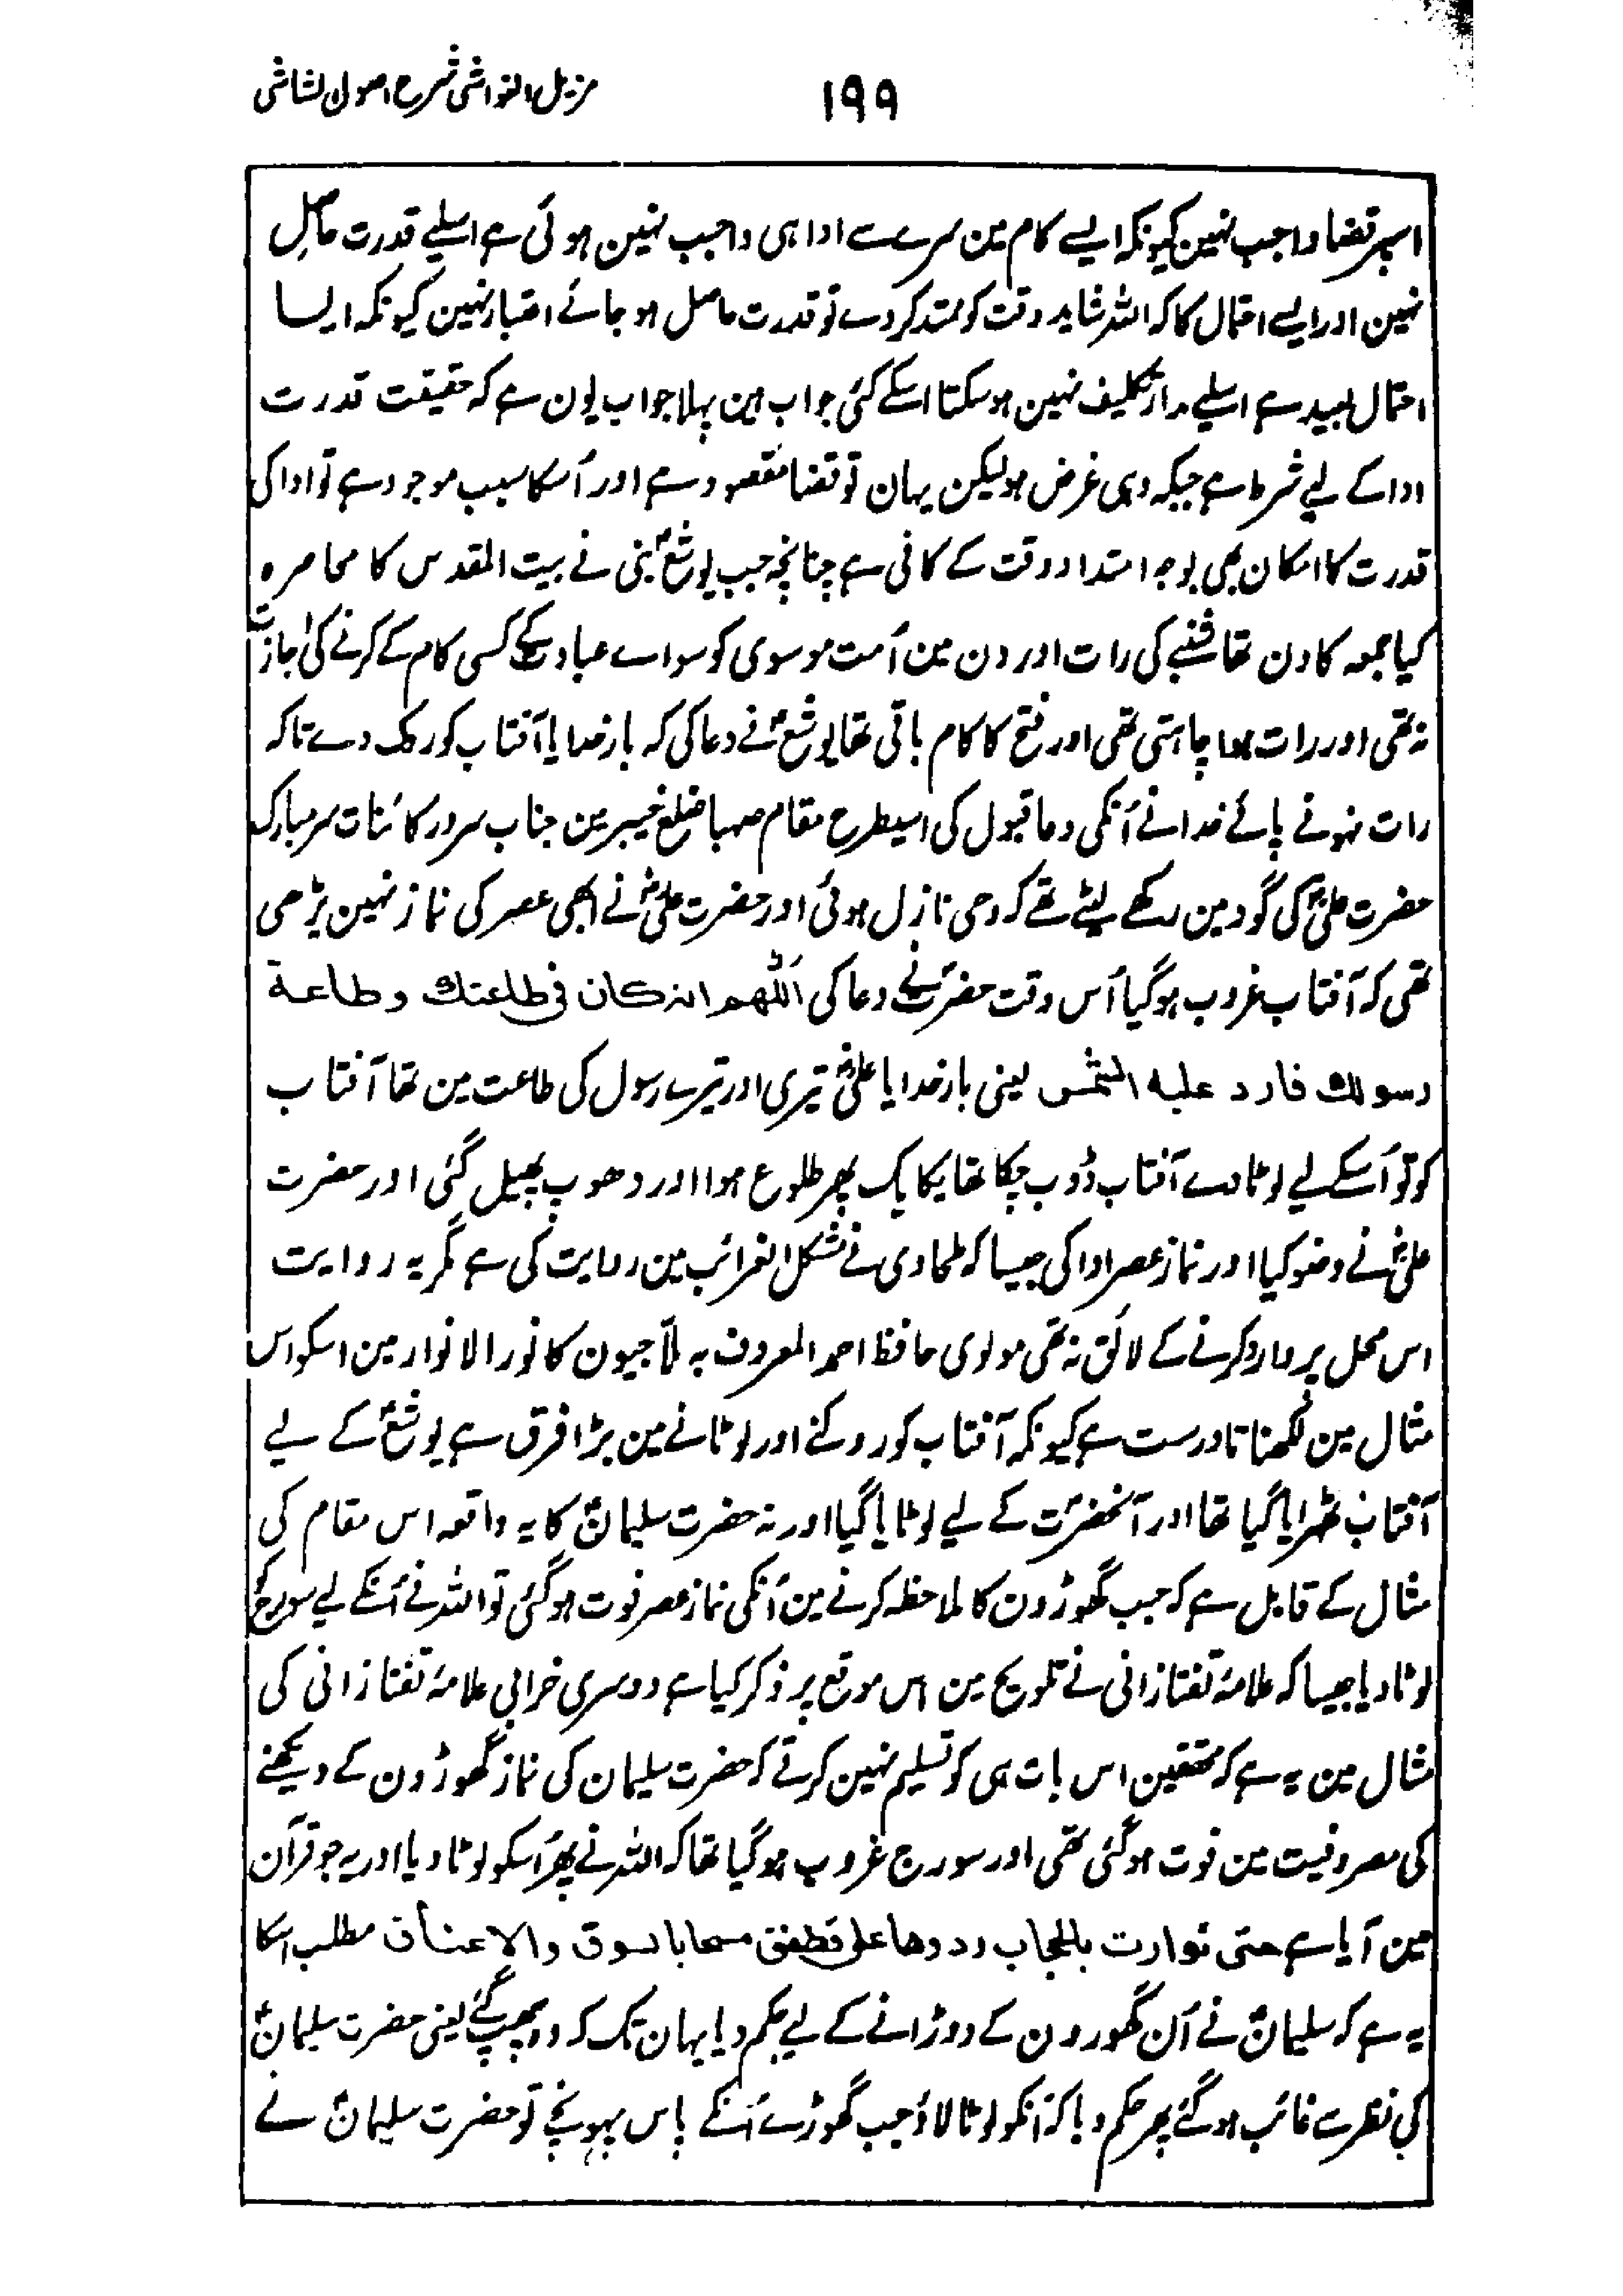 مزیل الغواشی شرح اصول الشاشی
۱۹۹
اسپر قضا واجب نہین کیونکہ ایسے کام مین سرے سے ادا ہی واجب نہین ہوئی ہے اسلیے قدرت حاصل
نہین اور ایسے احتمال کا کہ اللہ شاید وقت کو ممتد کر دے تو قدرت حاصل ہو جائے اعتبار نہین کیونکہ ایسا
احتمال بعید ہے اسلیے مدار تکلیف نہین ہوسکتا اسکے کئی جواب ہین پہلا جواب یون ہے کہ حقیقت قدرت
ادا کے لیے شرط ہے جبکہ وہی غرض ہو لیکن یہان تو قضا مقصود ہے اور اُسکا سبب موجود ہے تو ادا کی
قدرت کا امکان بھی بوجہ امتداد وقت کے کافی ہے چنانچہ جب یوشعؑ نبی نے بیت المقدس کا محاصرہ
کیا جمعہ کا دن تھا شنبے کی رات اور دن مین اُمت موسوی کو سواے عبادت کے کسی کام کے کرنے کی اجازت
نہ تھی اور رات ہوا چاہتی تھی اور فتح کا کام باقی تھا یوشعؑ نے دعا کی کہ بار خدایا آفتاب کو روک دے تاکہ
رات نہونے پائے خدا نے اُنکی دعا قبول کی اسیطرح مقام صہبا ضلع خیبر مین جناب سرور کائنات سر مبارک
حضرت علیؓ کی گود مین رکھے لیٹے تھے کہ وحی نازل ہوئی اور حضرت علیؓ نے ابھی عصر کی نماز نہین پڑھی
تھی کہ آفتاب غروب ہوگیا اُس وقت حضرتؐ نے دعا کی اَللّٰهم انہ کان فی طاعتك وطاعة
رسولك فاردد علیه الشمس یعنی بار خدایا علیؓ تیری اور تیرے رسول کی طاعت مین تھا آفتاب
کو تو اُسکے لیے لوٹا دے آفتاب ڈوب چکا تھا یکایک پھر طلوع ہوا اور دھوپ پھیل گئی اور حضرت
علیؓ نے وضو کیا اور نماز عصر ادا کی جیسا کہ طحاوی نے مشکل الغرائب مین روایت کی ہے مگر یہ روایت
اس محل پر وارد کرنے کے لائق نہ تھی مولوی حافظ احمد المعروف بہ ملّا جیون کا نور الانوار مین اسکو اس
مثال مین لکھنا نادرست ہے کیونکہ آفتاب کو روکنے اور لوٹانے مین بڑا فرق ہے یوشعؑ کے لیے
آفتاب ٹھرایا گیا تھا اور آنحضرتؐ کے لیے لوٹایا گیا اور نہ حضرت سلیمانؑ کا یہ واقعہ اس مقام کی
مثال کے قابل ہے کہ جب گھوڑون کا ملاحظہ کرنے مین اُنکی نماز عصر فوت ہوگئی تو اللہ نے اُنکے لیے سورج کو
لوٹا دیا جیسا کہ علامۂ تفتازانی نے تلویح مین اس موقع پر ذکر کیا ہے دوسری خرابی علامۂ تفتازانی کی
مثال مین یہ ہے کہ محققین اس بات ہی کو تسلیم نہین کرتے کہ حضرت سلیمان کی نماز گھوڑون کے دیکھنے
کی مصروفیت مین فوت ہوگئی تھی اور سورج غروب ہوگیا تھا کہ اللہ نے پھر اُسکو لوٹا دیا اور یہ جو قرآن
مین آیا ہے حتی توارت بالحجاب ردوها علی فطفق مسحا بالسوق والاعناق مطلب اسکا
یہ ہے کہ سلیمانؑ نے اُن گھوڑون کے دوڑانے کے لیے حکم دیا یہان تک کہ وہ چھپ گئے یعنی حضرت سلیمانؑ
کی نظر سے غائب ہوگئے پھر حکم دیا کہ اُنکو لوٹا لاؤ جب گھوڑے اُنکے پاس پہونچے تو حضرت سلیمانؑ نے